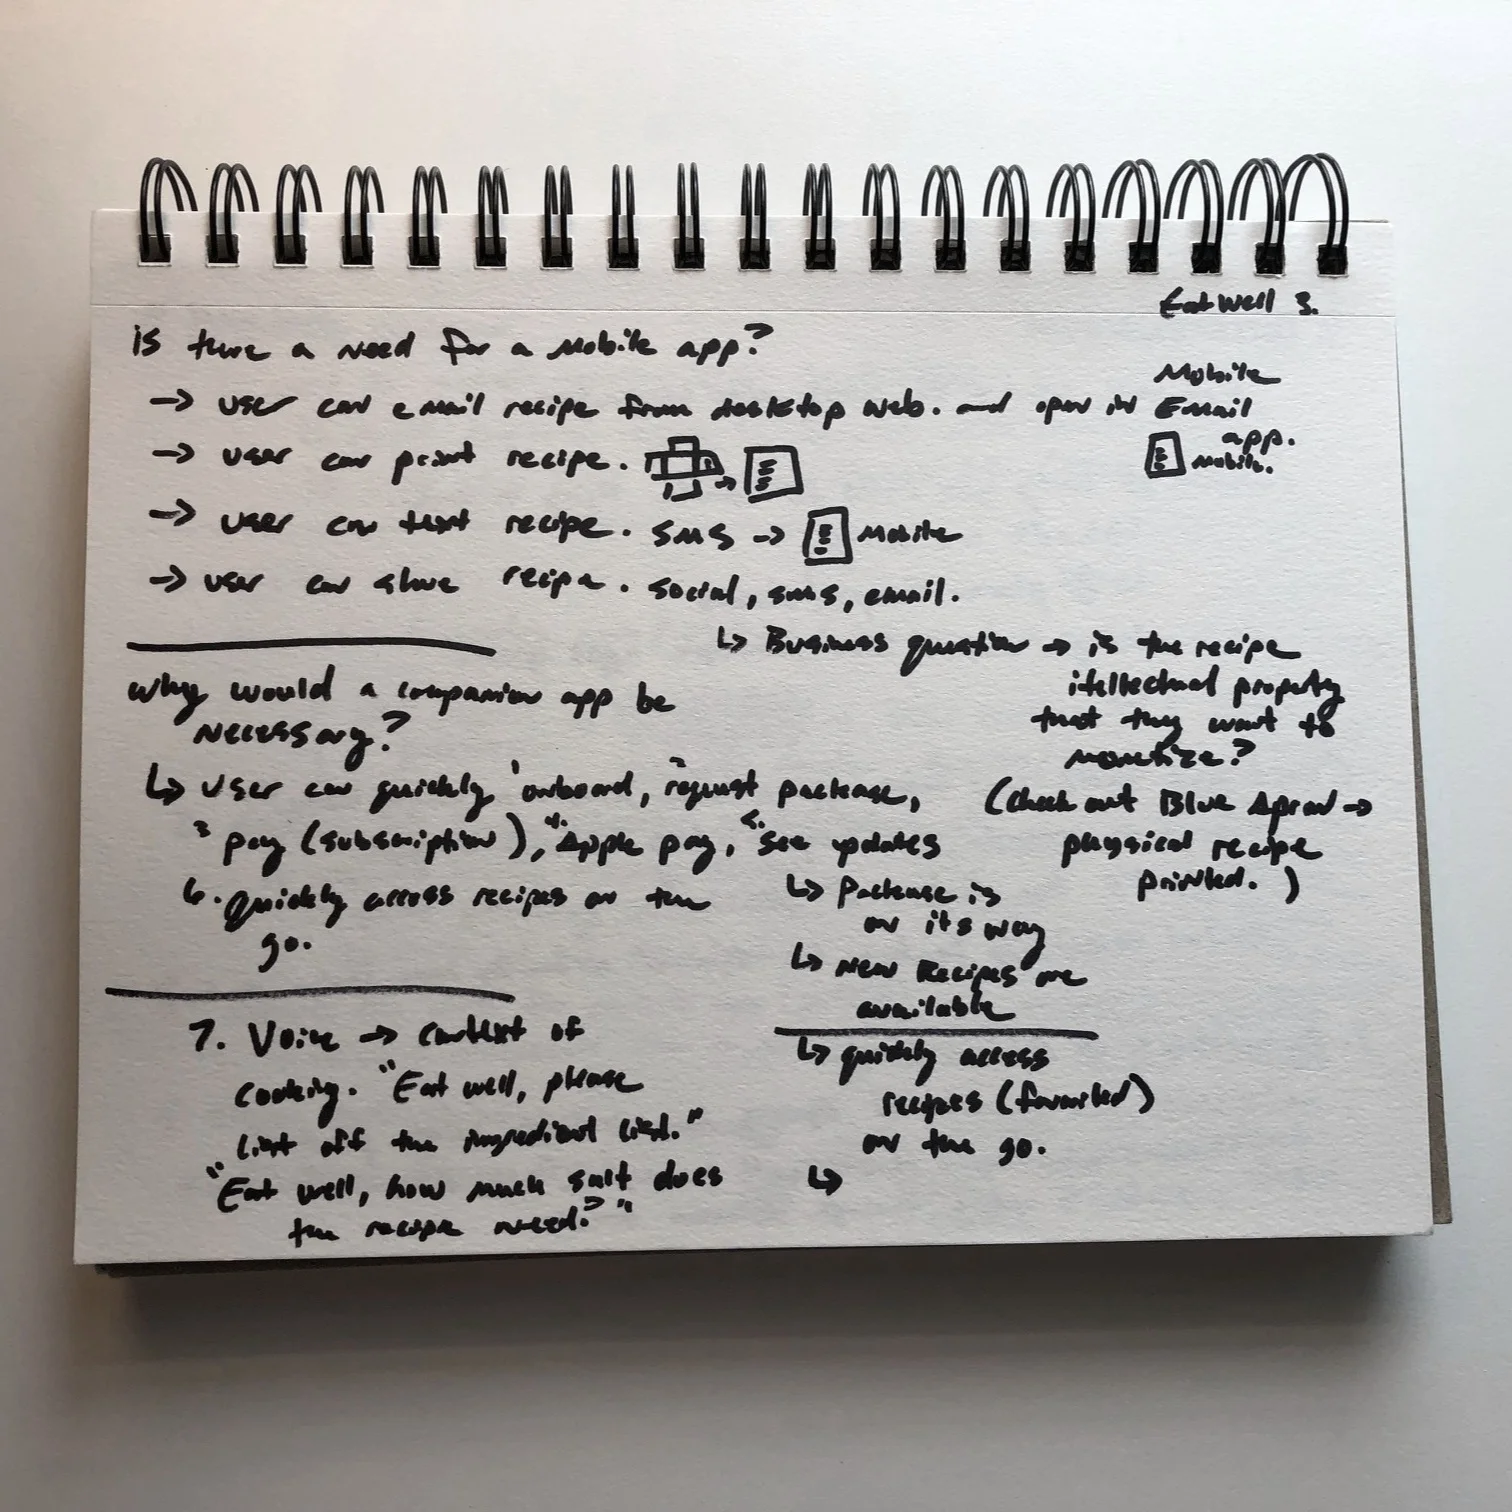 EatWell 3.
is there a need for a mobile app?
→ user can email recipe from desktop web. and open in Mobile Email app.
Mobile.
→ user can print recipe. →
→ user can text recipe. SMS → Mobile
→ user can share recipe. social, sms, email.
↳ Business question → is the recipe
itellectual property
that they want to
monetize?
(check out Blue Apron →
physical recipe
printed.)
why would a companion app be
necessary?
↳ user can quickly 1 onboard, 2 request package,
3 pay (subscription), 4. Apple pay, 5. see updates
6. quickly access recipes on the
go.
↳ Package is
on its way
↳ New Recipes are
available
↳ quickly access
recipes (favorited)
on the go.
↳
7. Voice → context of
cooking. "Eat well, please
list off the ingredient list."
"Eat well, how much salt does
the recipe need?"